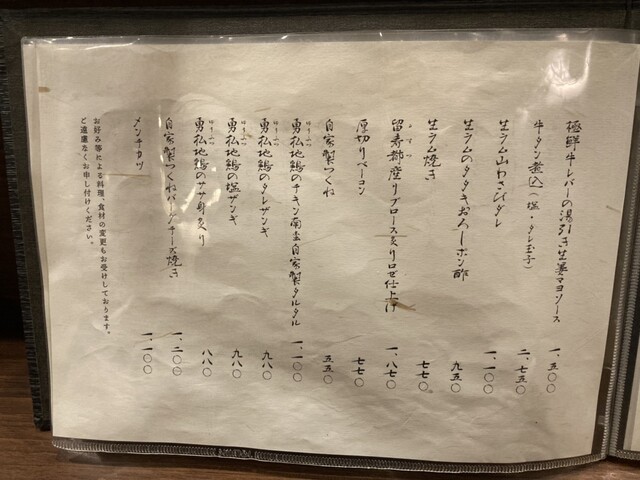 極鮮牛レバーの湯引き生姜マヨソース 一、五〇〇
牛タン煮込（塩・タレ玉子） 二、七五〇
生ラム山わさびダレ 一、一〇〇
生ラムのタタキおろしポン酢 九五〇
生ラム焼き 七七〇
留寿都産リブロース炙りロゼ仕上げ 一、八七〇
厚切りベーコン 七七〇
自家製つくね 五五〇
勇払地鶏のチキン南蛮自家製タルタル 一、一〇〇
勇払地鶏のタレザンギ 九八〇
勇払地鶏の塩ザンギ 九八〇
勇払地鶏のササ身炙り 八八〇
自家製つくねバーグチーズ焼き 一、二〇〇
メンチカツ 一、一〇〇
お好み等による料理、食材の変更もお受けしております。
ご遠慮なくお申し付けください。